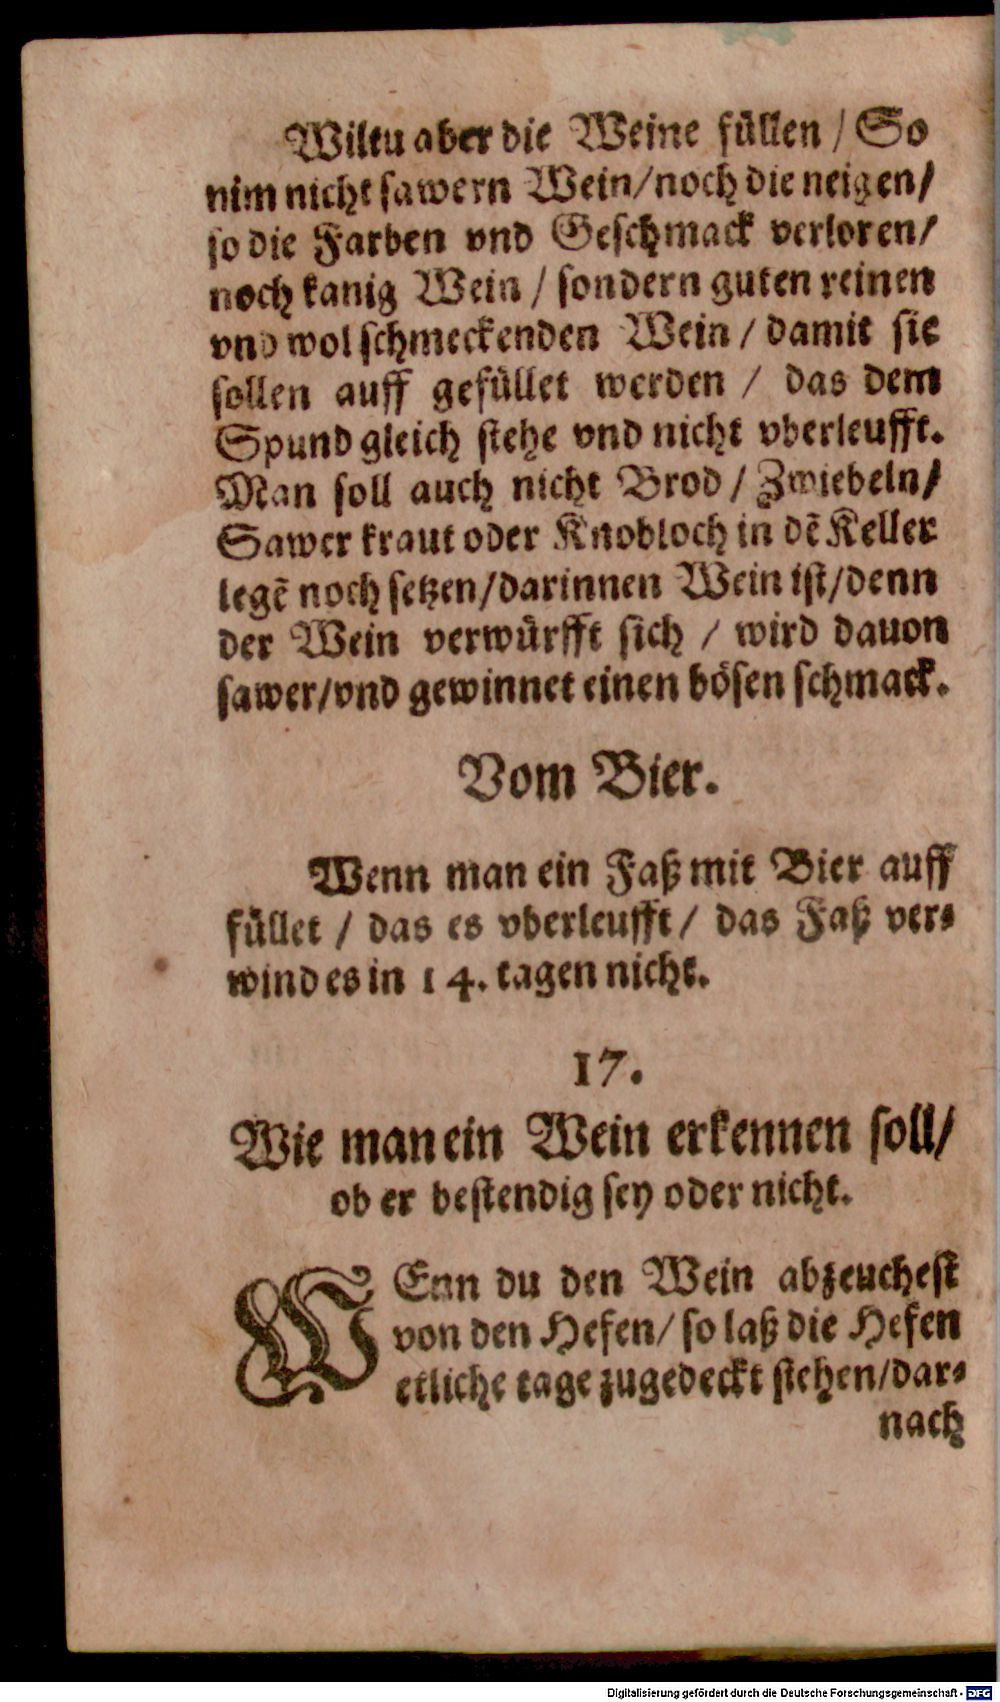 Wiltu aber die Weine füllen / So
nim nicht sawern Wein/noch die neigen/
so die Farben vnd Geschmack verloren/
noch kanig Wein / sondern guten reinen
vnd wol schmeckenden Wein / damit sie
sollen auff gefüllet werden / das dem
Spund gleich stehe vnd nicht vberleufft.
Man soll auch nicht Brod / Zwiebeln/
Sawer kraut oder Knobloch in dẽ Keller
legẽ noch setzen/darinnen Wein ist/denn
der Wein verwürfft sich / wird dauon
sawer/vnd gewinnet einen bösen schmack.
Vom Bier.
Wenn man ein Faß mit Bier auff
füllet / das es vberleufft / das Faß ver-
wind es in 14. tagen nicht.
17.
Wie man ein Wein erkennen soll/
ob er bestendig sey oder nicht.
WEnn du den Wein abzeuchest
von den Hefen/ so laß die Hefen
etliche tage zugedeckt stehen/dar-
nach
Digitalisierung gefördert durch die Deutsche Forschungsgemeinschaft - DFG